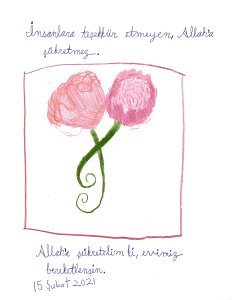 İnsanlara teşekkür etmeyen, Allah'a
şükretmez.
Allah'a şükretelim ki, evimiz
bereketlensin.
15 Şubat 2021